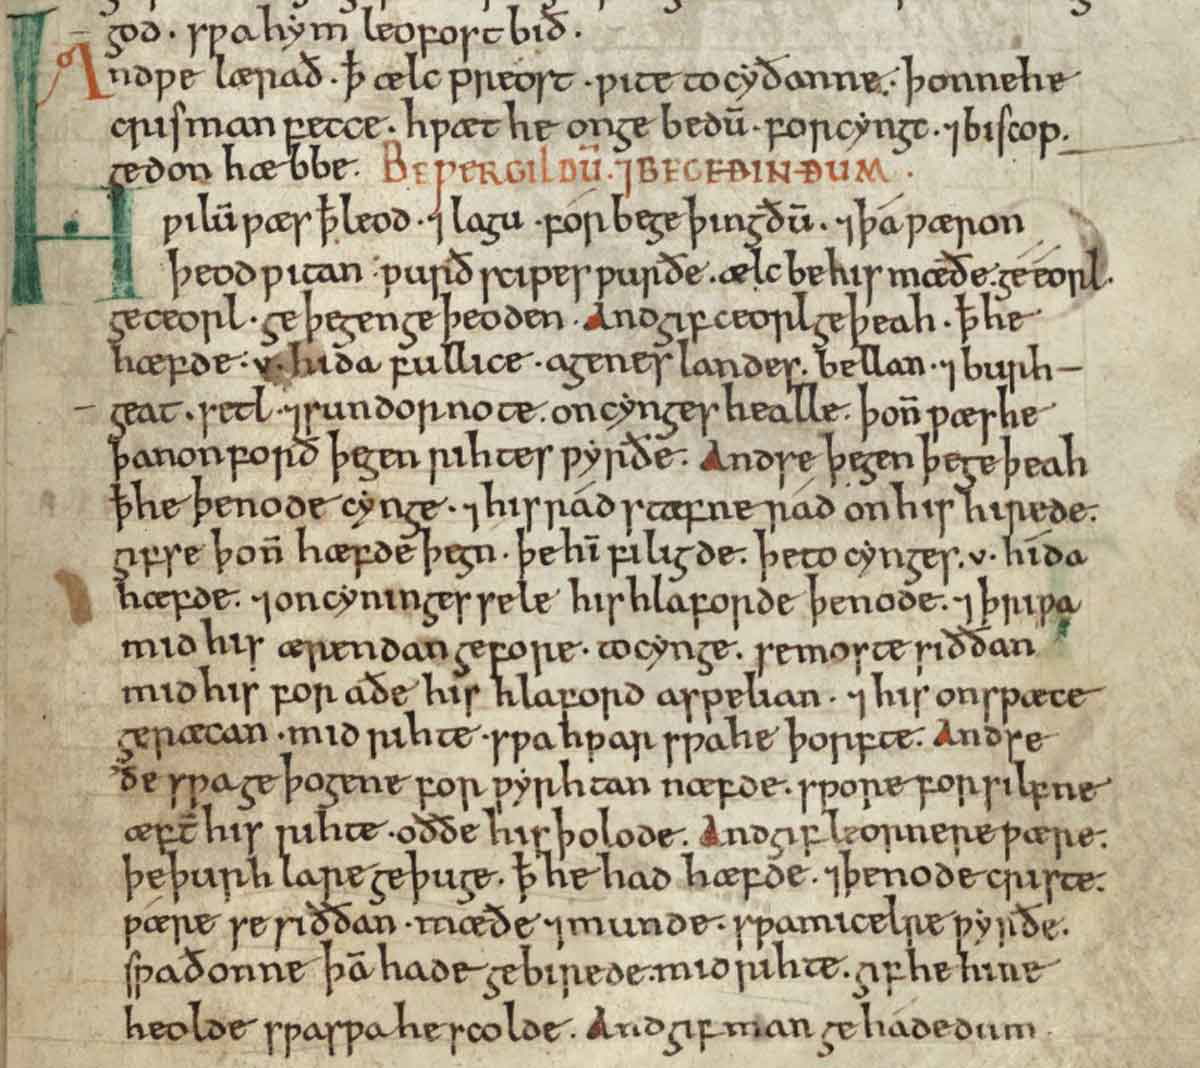 god · ꞅƿa hẏm leofoꞅt bið ·
Andƿe læꞃað · ꝥ ælc pꞃeoꞅt · ƿite to cẏðanne · þonne he
cꞃiſman fecce · hƿæt he on gebedū · foꞃ cẏngc · ⁊ biſcop ·
gedon hæbbe · BE ǷERGILDŪ · ⁊ BEGEÐINÐUM ·
Hƿilū ƿæꞅ ꝥ leod · ⁊ lagu · foꞃ be geþingðū · ⁊ þá ƿæꞃon
þeodƿitan · ƿuꞃðꞅcipeꞅ ƿuꞃðe · ælc be hiꞅ mæðe · ge eoꞃl ·
ge ceoꞃl · ge þegen ge þeoden · And gif ceoꞃl geþeah · ꝥ he
hæfde · v · hida fullice · ageneꞅ landeꞅ · bellan · ⁊ buꞃh-
geat · ꞅetl · ⁊ ꞅundoꞃnote · on cẏngeꞅ healle · þon̄ ƿæꞅ he
þanon foꞃð þegen ꞃihteꞅ ƿẏꞃðe · And ꞅe þegen þe geþeah
ꝥ he þenode cẏnge · ⁊ hiꞅ ꞃád ꞅtæfne ꞃád on hiꞅ hiꞃede ·
gif ꞅe þon̄ hæfde þegn · þe hī filigde · þe to cẏngeꞅ · v · hida
hæfde · ⁊ on cyningeꞅ ꞅele hiꞅ hlafoꞃde þenode · ⁊ þꞃiƿa
mid hiꞅ æꞃendan gefoꞃe · to cẏnge · ꞅe moꞅte ꞅiððan
mid hiꞅ foꞃaðe hiꞅ hlafoꞃd aꞅpelian · ⁊ hiꞅ onꞅpæce
geꞃæcan · mid ꞃihte · ꞅƿa hƿaꞃ ꞅƿa he þoꞃfte · And ꞅe
ðe ꞅƿa geþogene foꞃƿẏꞃhtan næfde · ꞅƿoꞃe foꞃ ꞅilfne
æft̄ hiꞅ ꞃihte · oððe hiꞅ þolode · And gif leoꞃneꞃe ƿæꞃe ·
þe þuꞃh laꞃe geþuge · ꝥ he had hæfde · ⁊ þenode cꞃiꞅte ·
ƿæꞃe ꞅe ꞅiððan · mæðe · ⁊ munde · ꞅƿa micelꞃe ƿẏꞃðe ·
ſƿa ðonne þā hade gebiꞃede · mid ꞃihte · gif he hine
heolde ꞅƿa ꞅƿa he ꞅcolde · And gif man gehádedum